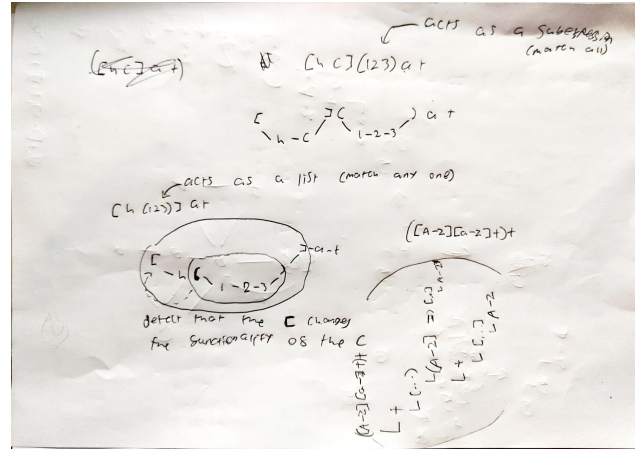 acts as a subexpression
(match all)
([hc]at)
[hc](123)at
[ ]( ) at
h-c 1-2-3
acts as a list (match any one)
[h(123)]at
([A-Z][a-z]+)+
[ ]-a-t
h ( 1-2-3 )
detect that the [ changes
the functionality of the (
([A-Z][a-z]+)+
L +
L (..)
L [A-Z] => [..]
L A-Z
L +
L [..]
L A-Z